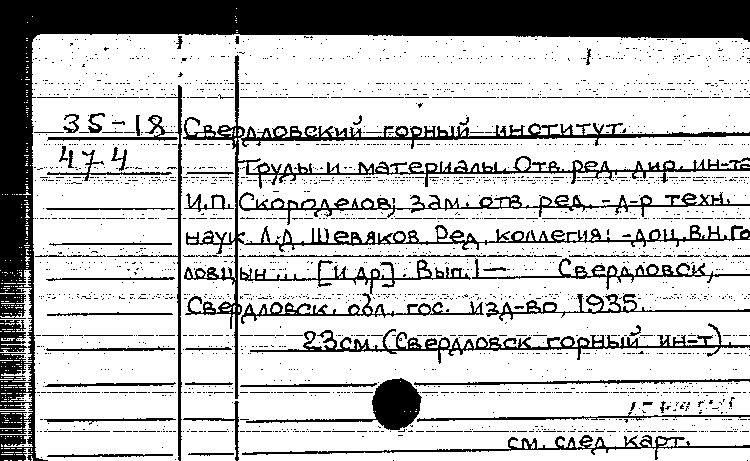 35-18 Свердловский горный институт.
474 Труды и материалы. Отв. ред. дир. ин-та
И.П. Скороделов; зам. отв. ред. -д-р техн.
наук Л.Д. Шевяков. Ред. коллегия: -доц. В.Н. Го
ловцын... [и др.]. Вып.1— Свердловск,
Свердловск. обл. гос. изд-во, 1935.
23см. (Свердловск горный ин-т).
см. след. карт.